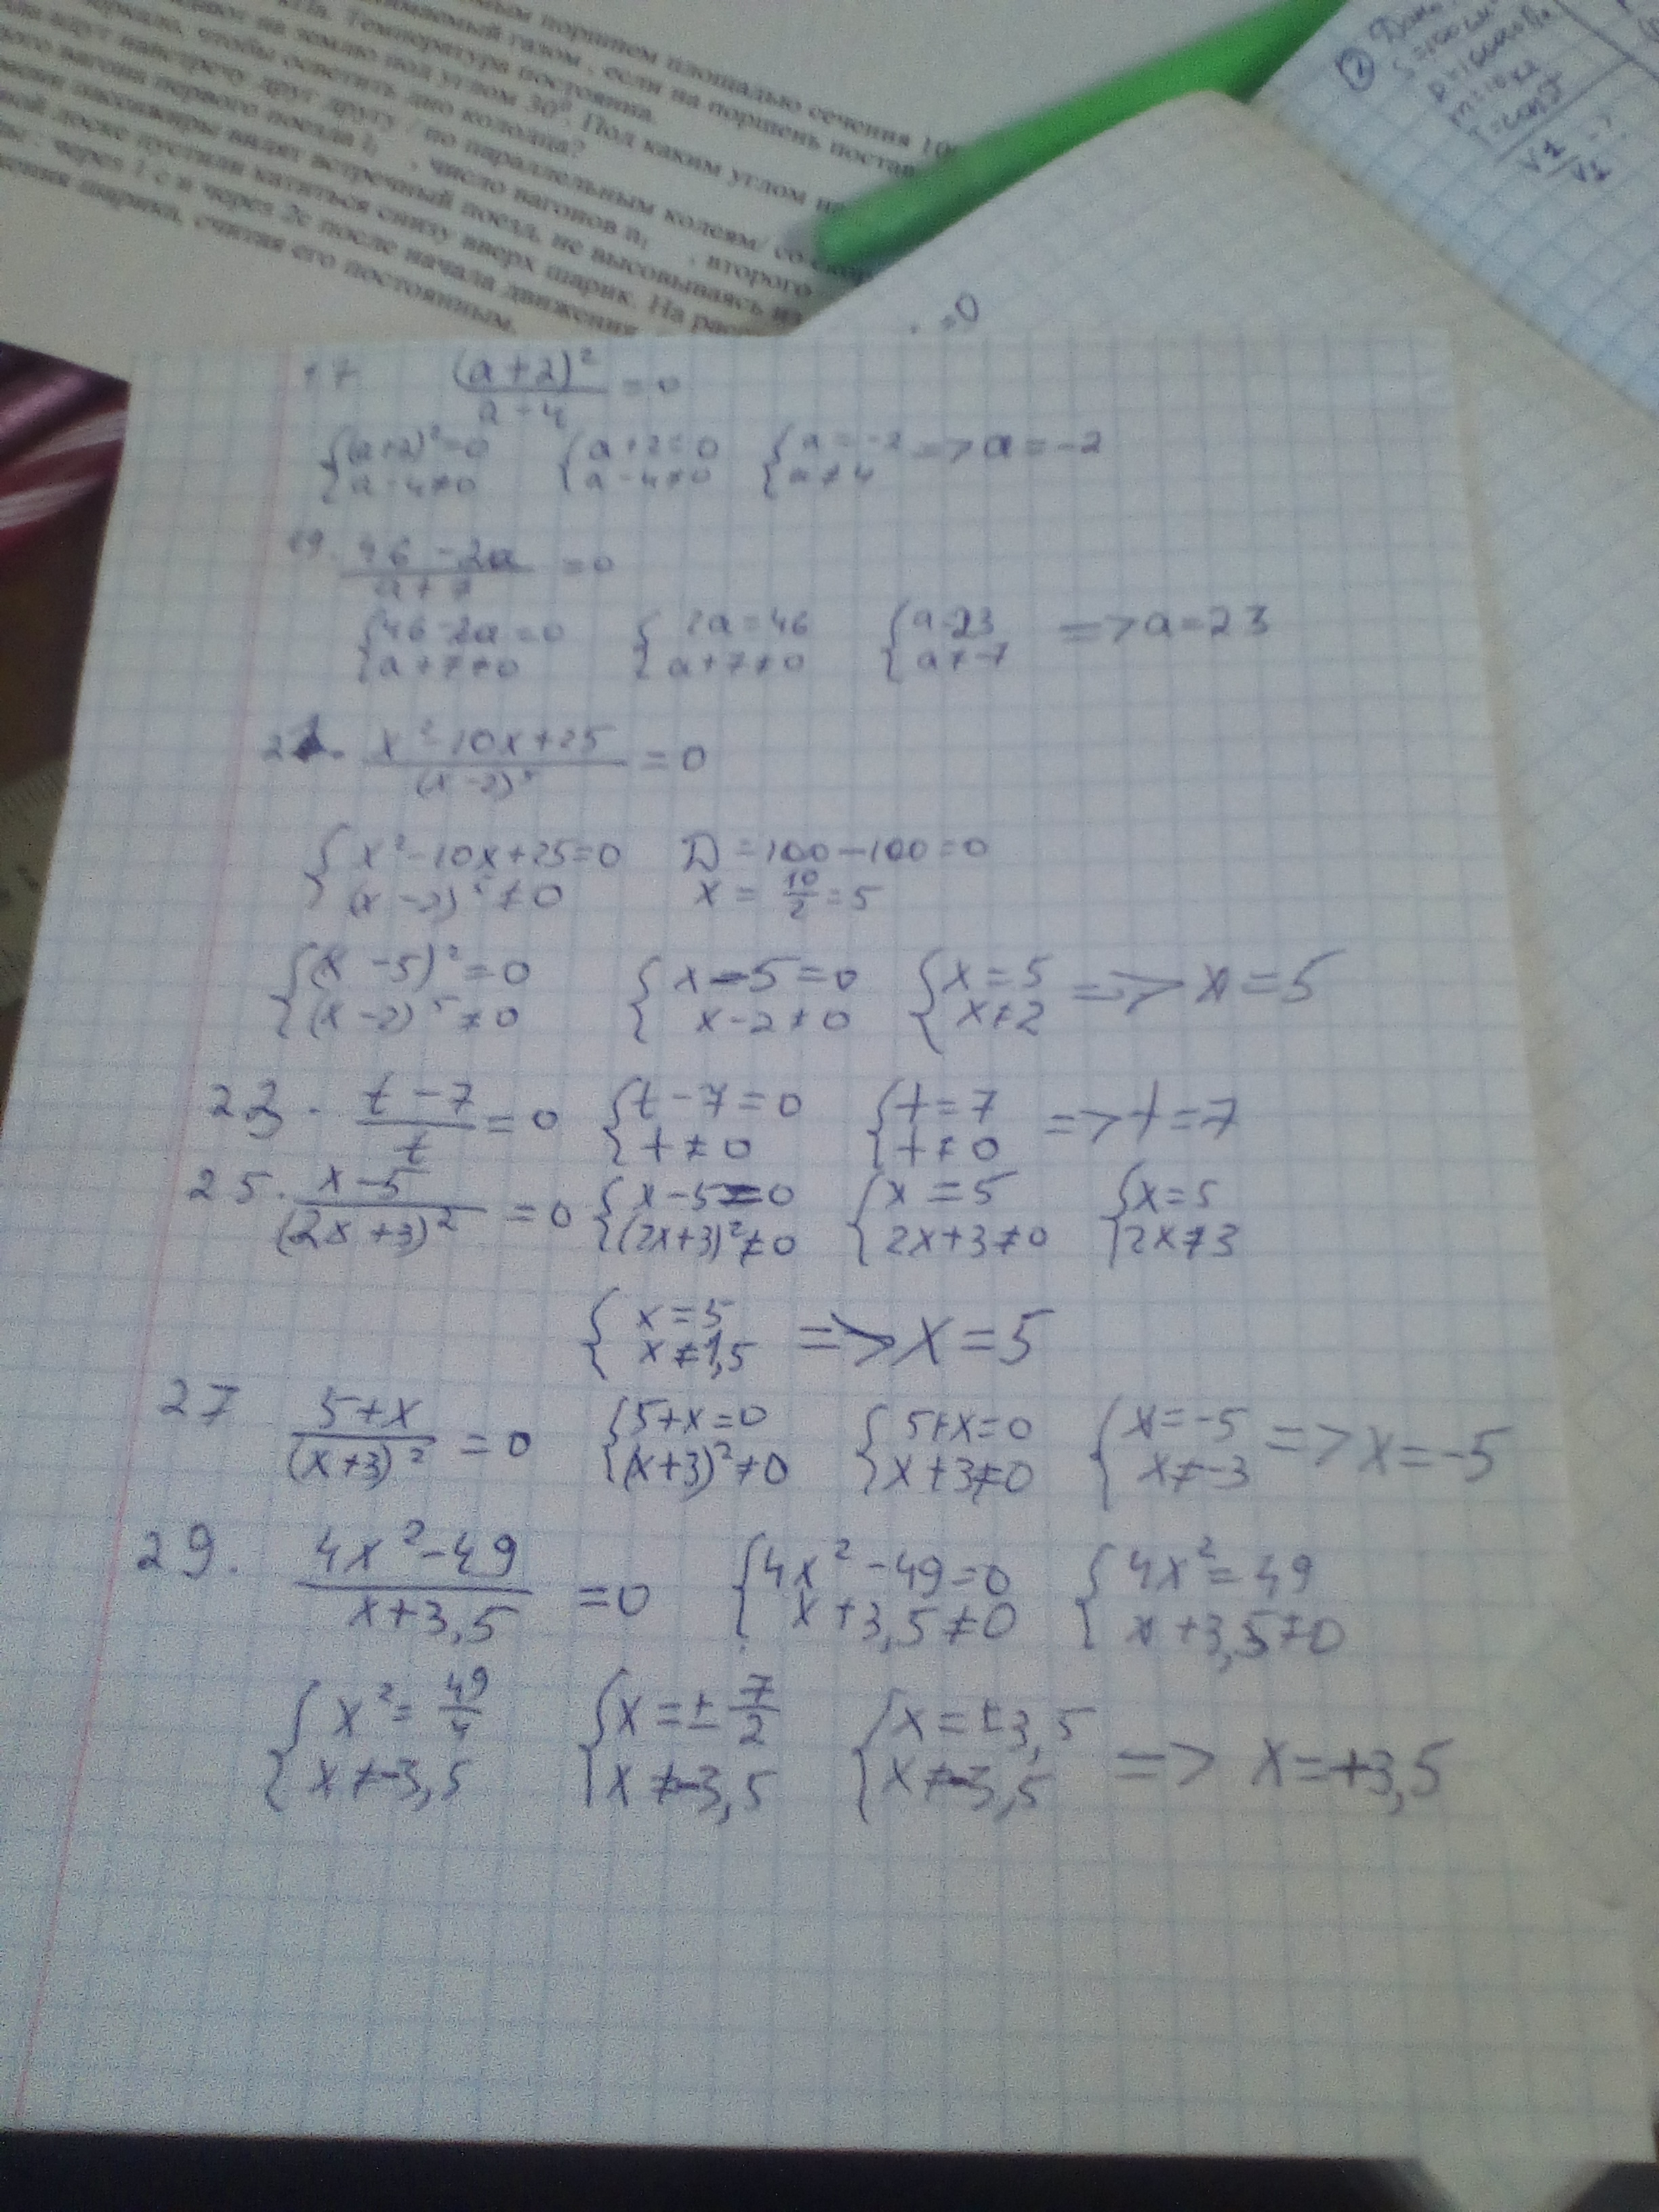 мым поршнем площадью сечения 10
нимаемый газом, если на поршень постав
кПа. Температура постоянна.
адают на землю под углом 30⁰. Под каким углом на
зеркало, чтобы осветить дно колодца?
идут навстречу друг другу / по параллельным колеям/ со скор
вагона первого поезда l₁ , число вагонов n₁ , второго
пассажиры видят встречный поезд, не высовываясь из
ной доске пустили катиться снизу вверх шарик. На расс
: через 1 с и через 2с после начала движения
жения шарика, считая его постоянным.
m=10кг
T=const
V1/V2 =?
=0
17 (a+2)²/(a-4) =0
{(a+2)²=0 {a+2=0 {a=-2 => a=-2
{a-4≠0 {a-4≠0 {a≠4
19. (46-2a)/(a+7) =0
{46-2a=0 {2a=46 {a=23 => a=23
{a+7≠0 {a+7≠0 {a≠-7
21. (x²-10x+25)/(x-2)⁵ =0
{x²-10x+25=0 D=100-100=0
{(x-2)⁵≠0 x=10/2=5
{(x-5)²=0 {x-5=0 {x=5 => x=5
{(x-2)⁵≠0 {x-2≠0 {x≠2
23. (t-7)/t =0 {t-7=0 {t=7 => t=7
{t≠0 {t≠0
25. (x-5)/(2x+3)² =0 {x-5=0 {x=5 {x=5
{(2x+3)²≠0 {2x+3≠0 {2x≠3
{x=5 => x=5
{x≠1,5
27 (5+x)/(x+3)² =0 {5+x=0 {5+x=0 {x=-5 => x=-5
{(x+3)²≠0 {x+3≠0 {x≠-3
29. (4x²-49)/(x+3,5) =0 {4x²-49=0 {4x²=49
{x+3,5≠0 {x+3,5≠0
{x²=49/4 {x=±7/2 {x=±3,5 => x=+3,5
{x≠-3,5 {x≠-3,5 {x≠-3,5